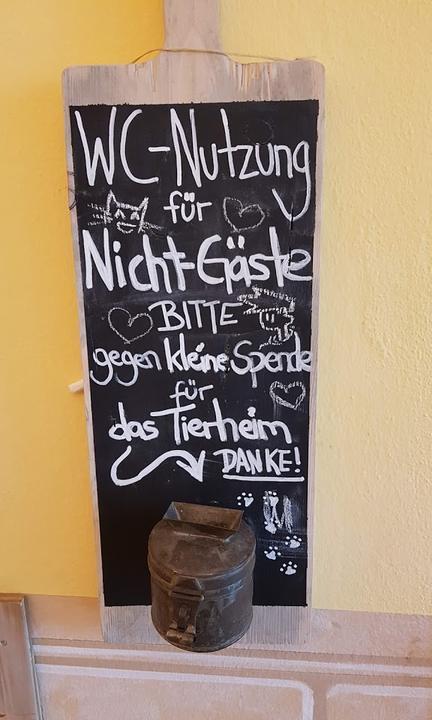 WC-Nutzung
für
Nicht-Gäste
BITTE
gegen kleine Spende
für
das Tierheim
DANKE!